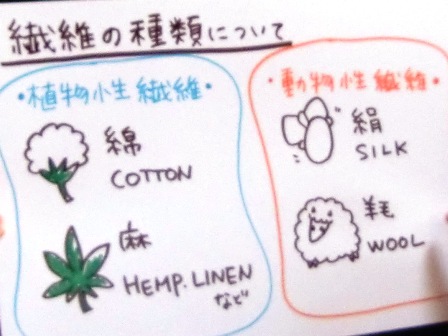 繊維の種類について
・植物小生繊維・
綿
COTTON
麻
HEMP. LINEN
など
・動物小生繊維・
絹
SILK
羊毛
WOOL